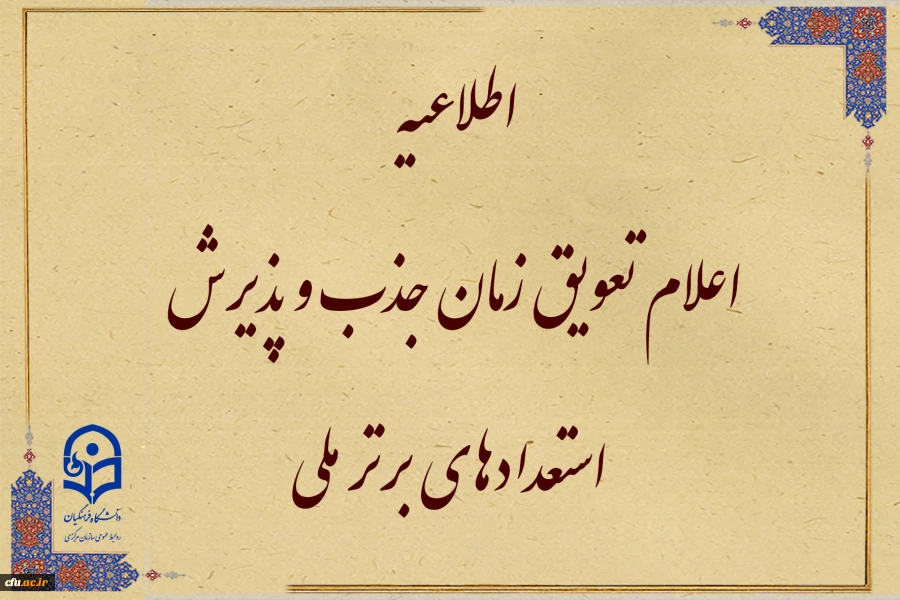 اطلاعیه
اعلام تعویق زمان جذب و پذیرش
استعدادهای برتر ملی
دانشگاه فرهنگیان
روابط عمومی سازمان مرکزی
cfu.ac.ir